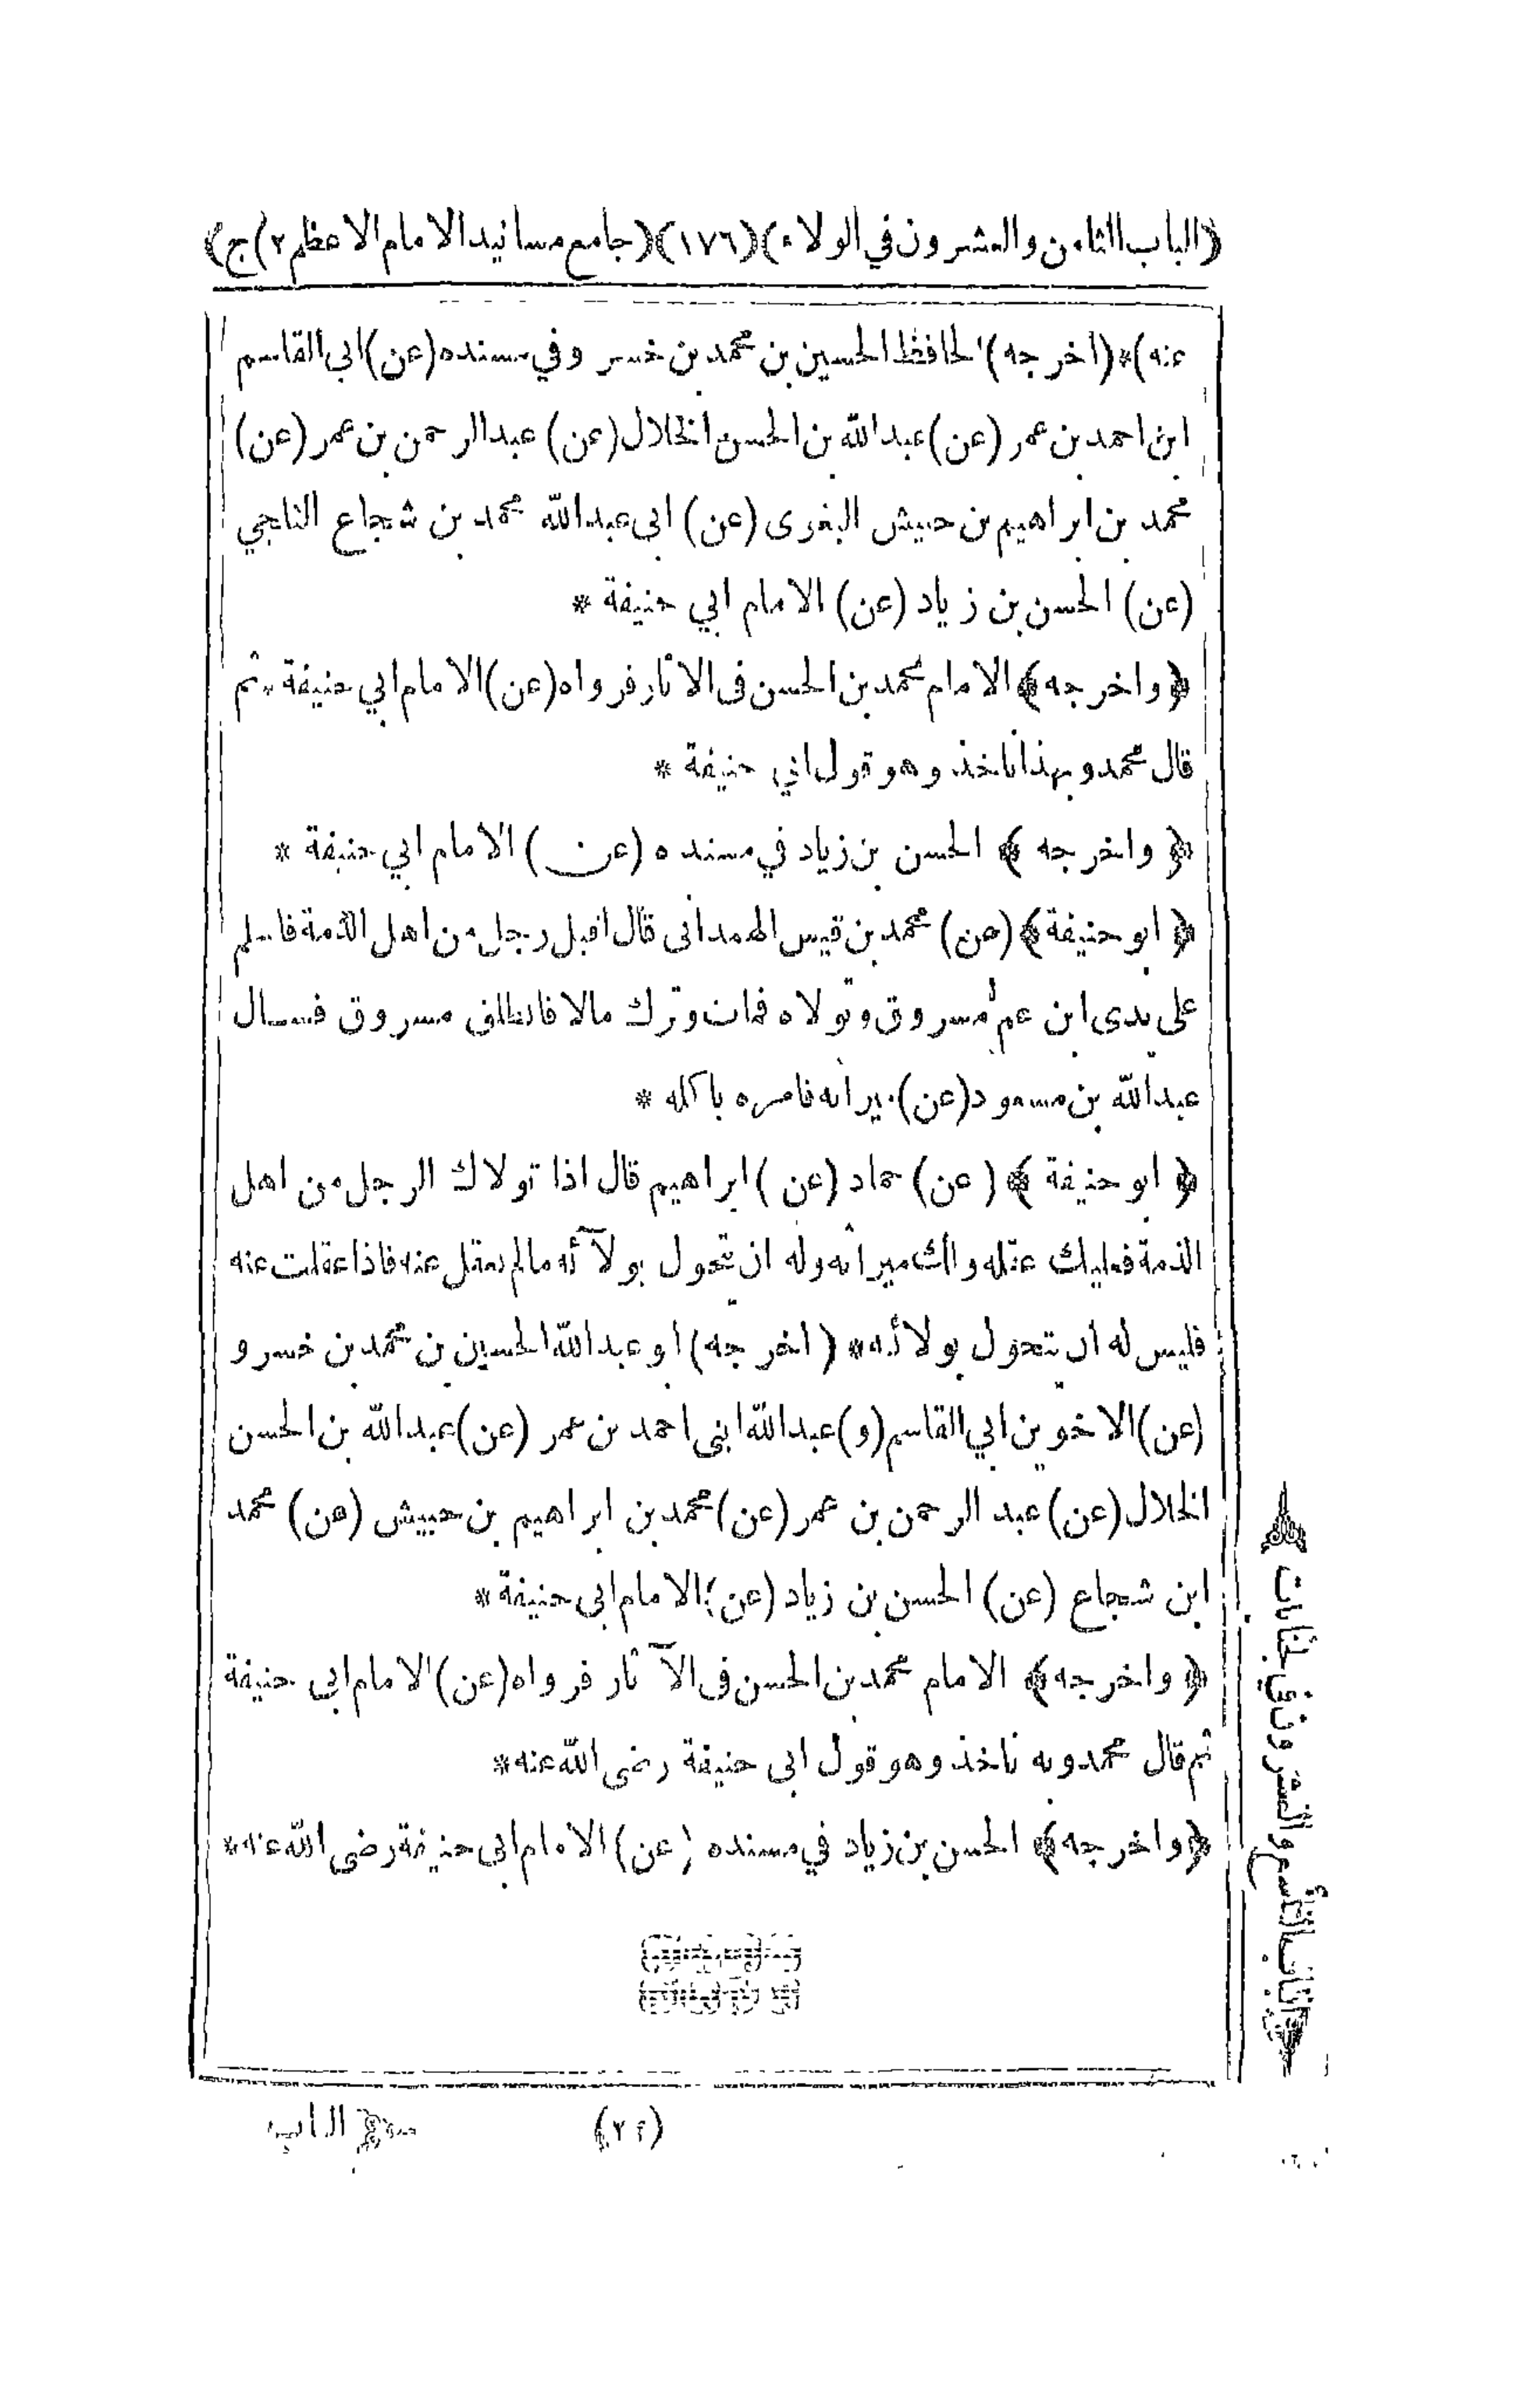 (الباب الثامن والعشرون في الولاء) (١٧٦) (جامع مسانيد الامام الاعظم ٢) ج)
عنه)*(اخرجه) الحافظ الحسين بن محمد بن خسر و في مسنده (عن) ابي القاسم
ابن احمد بن عمر (عن) عبد الله بن الحسن الخلال (عن) عبد الرحمن بن عمر (عن)
محمد بن ابراهيم بن حبيش البغوى (عن) ابى عبد الله محمد بن شجاع الثلجي
(عن) الحسن بن زياد (عن) الامام ابي حنيفة *
﴿واخرجه﴾ الامام محمد بن الحسن فى الاثار فرواه (عن) الامام ابي حنيفة * ثم
قال محمد وبهذا ناخذ وهو قول ابي حنيفة *
﴿ واخرجه ﴾ الحسن بن زياد في مسنده (عن) الامام ابي حنيفة *
﴿ ابو حنيفة﴾ (عن) محمد بن قيس الهمدانى قال اقبل رجل من اهل الذمة فاسلم
على يدى ابن عم مسروق وتولاه فمات وترك مالا فانطلق مسروق فسال
عبد الله بن مسعود (عن) ميراثه فامره باكله *
﴿ ابو حنيفة ﴾ (عن) حماد (عن) ابراهيم قال اذا تولاك الرجل من اهل
الذمة فعليك عقله ولك ميراثه وله ان يتحول بولآئه مالم يعقل عنه فاذا عقلت عنه
فليس له ان يتحول بولائه * (اخرجه) ابو عبد الله الحسين بن محمد بن خسرو
(عن) الاخوين ابي القاسم (و) عبد الله ابنى احمد بن عمر (عن) عبد الله بن الحسن
الخلال (عن) عبد الرحمن بن عمر (عن) محمد بن ابراهيم بن حبيش (عن) محمد
ابن شجاع (عن) الحسن بن زياد (عن) الامام ابى حنيفة *
﴿ واخرجه﴾ الامام محمد بن الحسن فى الآثار فرواه (عن) الامام ابى حنيفة
ثم قال محمد وبه ناخذ وهو قول ابى حنيفة رضى الله عنه*
﴿واخرجه﴾ الحسن بن زياد في مسنده (عن) الامام ابى حنيفة رضى الله عنه*
﴿الباب التاسع والعشرون في الجنايات﴾
الباب